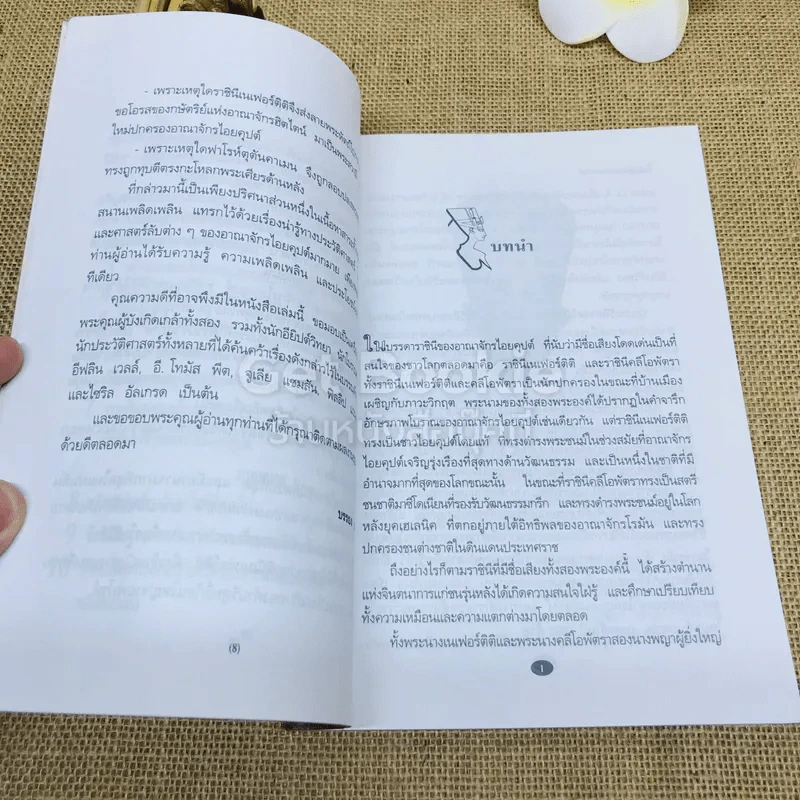 - เพราะเหตุใดราชินีเนเฟอร์ติติจึงส่งสายพระ
ขอโอรสของกษัตริย์แห่งอาณาจักรฮิตไตน์ มาเป็นพระ
ใหม่ปกครองอาณาจักรไอยคุปต์
- เพราะเหตุใดฟาโรห์ตุตันคาเมน จึงถูกลอบปลง
ทรงถูกทุบตีตรงกะโหลกพระเศียรด้านหลัง
ที่กล่าวมานี้เป็นเพียงปริศนาส่วนหนึ่งในเนื้อหาสาระ
สนานเพลิดเพลิน แทรกไว้ด้วยเรื่องน่ารู้ทางประวัติศาสตร์
และศาสตร์ลับต่าง ๆ ของอาณาจักรไอยคุปต์มากมาย
ท่านผู้อ่านได้รับความรู้ ความเพลิดเพลิน และประโยชน์
ทีเดียว
คุณความดีที่อาจพึงมีในหนังสือเล่มนี้ ขอมอบเป็น
พระคุณผู้บังเกิดเกล้าทั้งสอง รวมทั้งนักอียิปต์วิทยา
นักประวัติศาสตร์ทั้งหลายที่ได้ค้นคว้าเรื่องดังกล่าวไว้
อีฟลิน เวลล์, อี. โทมัส พีต, จูเลีย แซมสัน, ฟิลลิป
และไซริล อัลเกรด เป็นต้น
และขอขอบพระคุณผู้อ่านทุกท่านที่ได้กรุณาติดตามผลงาน
ด้วยดีตลอดมา
(8)
บทนำ
ในบรรดาราชินีของอาณาจักรไอยคุปต์ ที่นับว่ามีชื่อเสียงโดดเด่นเป็นที่
สนใจของชาวโลกตลอดมาคือ ราชินีเนเฟอร์ติติ และราชินีคลีโอพัตรา
ทั้งราชินีเนเฟอร์ติติและคลีโอพัตราเป็นนักปกครองในขณะที่บ้านเมือง
เผชิญกับภาวะวิกฤต พระนามของทั้งสองพระองค์ได้ปรากฏในคำจารึก
อักษรภาพโบราณของอาณาจักรไอยคุปต์เช่นเดียวกัน แต่ราชินีเนเฟอร์ติติ
ทรงเป็นชาวไอยคุปต์โดยแท้ ที่ทรงดำรงพระชนม์ในช่วงสมัยที่อาณาจักร
ไอยคุปต์เจริญรุ่งเรืองที่สุดทางด้านวัฒนธรรม และเป็นหนึ่งในชาติที่มี
อำนาจมากที่สุดของโลกขณะนั้น ในขณะที่ราชินีคลีโอพัตราทรงเป็นสตรี
ชนชาติมาซีโดเนียนที่รองรับวัฒนธรรมกรีก และทรงดำรงพระชนม์อยู่ในโลก
หลังยุคเฮเลนิค ที่ตกอยู่ภายใต้อิทธิพลของอาณาจักรโรมัน และทรง
ปกครองชนต่างชาติในดินแดนประเทศราช
ถึงอย่างไรก็ตามราชินีที่มีชื่อเสียงทั้งสองพระองค์นี้ ได้สร้างตำนาน
แห่งจินตนาการแก่ชนรุ่นหลังได้เกิดความสนใจใฝ่รู้ และศึกษาเปรียบเทียบ
ทั้งความเหมือนและความแตกต่างมาโดยตลอด
ทั้งพระนางเนเฟอร์ติติและพระนางคลีโอพัตราสองนางพญาผู้ยิ่งใหญ่
1